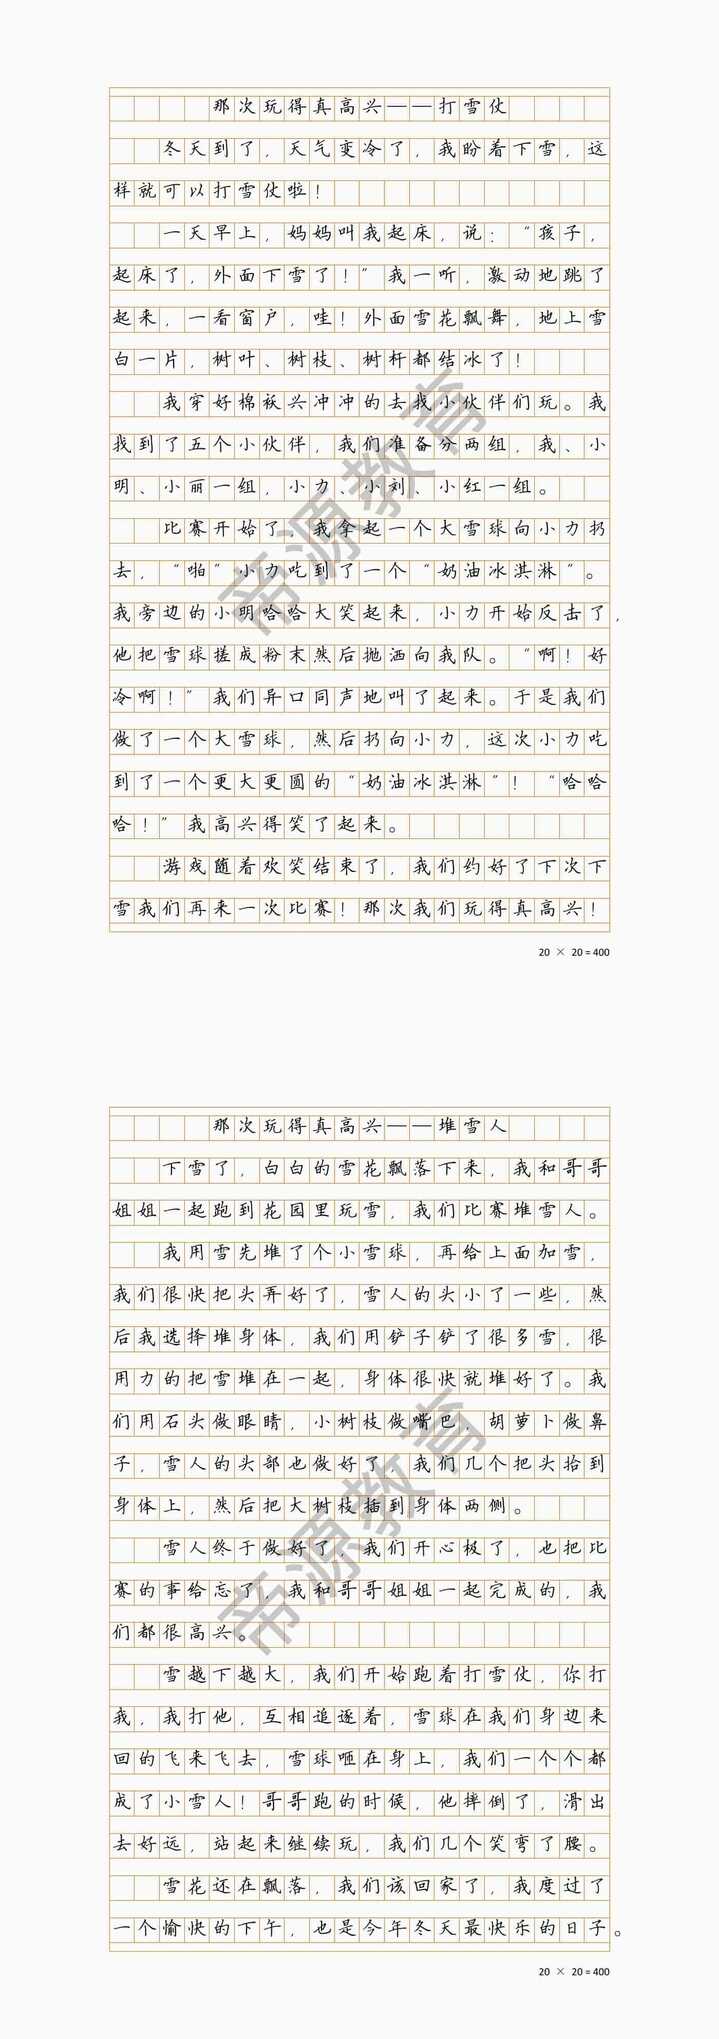 那次玩得真高兴——打雪仗
冬天到了，天气变冷了，我盼着下雪，这
样就可以打雪仗啦！
一天早上，妈妈叫我起床，说：“孩子，
起床了，外面下雪了！”我一听，激动地跳了
起来，一看窗户，哇！外面雪花飘舞，地上雪
白一片，树叶、树枝、树杆都结冰了！
我穿好棉袄兴冲冲的去找小伙伴们玩。我
找到了五个小伙伴，我们准备分两组，我、小
明、小丽一组，小力、小刘、小红一组。
比赛开始了，我拿起一个大雪球向小力扔
去，“啪”小力吃到了一个“奶油冰淇淋”。
我旁边的小明哈哈大笑起来，小力开始反击了，
他把雪球搓成粉末然后抛洒向我队。“啊！好
冷啊！”我们异口同声地叫了起来。于是我们
做了一个大雪球，然后扔向小力，这次小力吃
到了一个更大更圆的“奶油冰淇淋”！“哈哈
哈！”我高兴得笑了起来。
游戏随着欢笑结束了，我们约好了下次下
雪我们再来一次比赛！那次我们玩得真高兴！
20 × 20＝400
那次玩得真高兴——堆雪人
下雪了，白白的雪花飘落下来，我和哥哥
姐姐一起跑到花园里玩雪，我们比赛堆雪人。
我用雪先堆了个小雪球，再给上面加雪，
我们很快把头弄好了，雪人的头小了一些，然
后我选择堆身体，我们用铲子铲了很多雪，很
用力的把雪堆在一起，身体很快就堆好了。我
们用石头做眼睛，小树枝做嘴巴，胡萝卜做鼻
子，雪人的头部也做好了，我们几个把头抬到
身体上，然后把大树枝插到身体两侧。
雪人终于做好了，我们开心极了，也把比
赛的事给忘了，我和哥哥姐姐一起完成的，我
们都很高兴。
雪越下越大，我们开始跑着打雪仗，你打
我，我打他，互相追逐着，雪球在我们身边来
回的飞来飞去，雪球咂在身上，我们一个个都
成了小雪人！哥哥跑的时候，他摔倒了，滑出
去好远，站起来继续玩，我们几个笑弯了腰。
雪花还在飘落，我们该回家了，我度过了
一个愉快的下午，也是今年冬天最快乐的日子。
20 × 20＝400
帝源教育
帝源教育